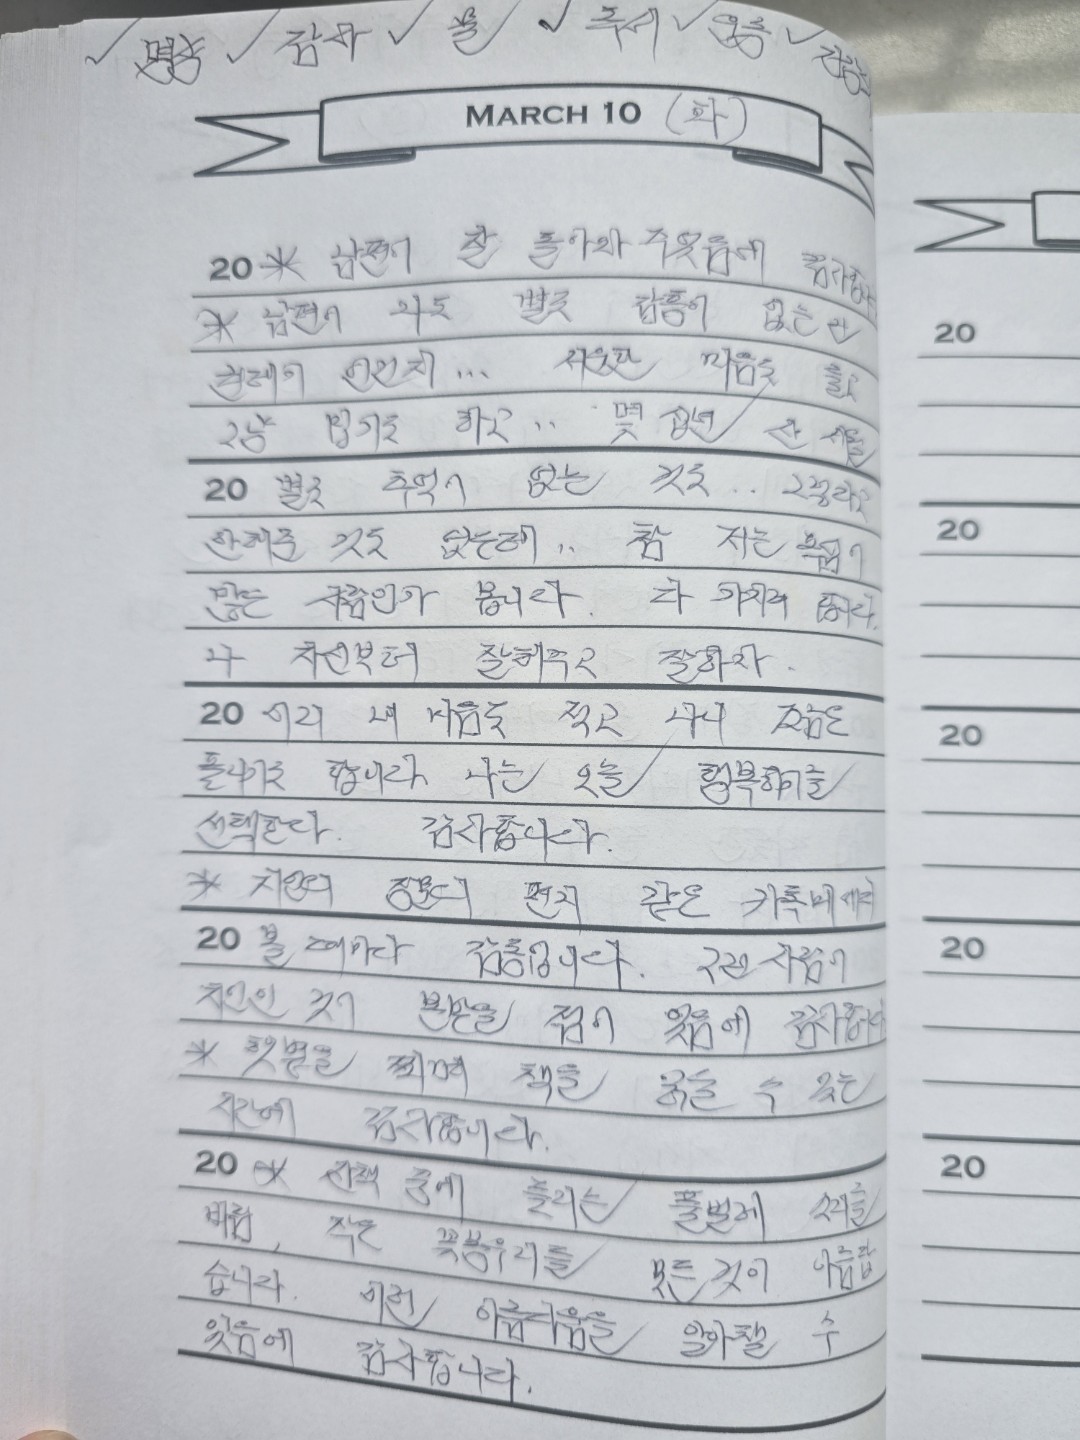 ✓ 명상 ✓ 감사 ✓ 물 ✓ 독서 ✓ 운동 ✓
MARCH 10 (화)
20 * 남편이 잘 돌아와 주었음에 감사합니다
* 남편이 와도 별로 감흥이 없는
... 서운한 마음도 들고
그냥 밉기도 하고.. 몇 십년 산 세월
20 별로 추억이 없는 것도..
한 해준 것도 없는데.. 참 저는 욕심이
많은 사람인가 봅니다. 다 가지려 합니다.
나 자신부터 잘해주고 잘하자.
20 이리 내 마음을 적고 나니 조금은
풀리기도 합니다. 나는 오늘 행복하기를
선택한다. 감사합니다.
* 지인의 장문의 편지 같은 카톡
20 볼 때마다 감동입니다. 그런 사람이
지인인 것이 본받을 점이 있음에 감사합니다
* 햇볕을 쬐며 책을 읽을 수 있는
시간에 감사합니다.
20 * 산책 중에 들리는 풀벌레 소리들
바람, 작은 꽃봉우리들 모든 것이 아름답
습니다. 이런 아름다움을 알아챌 수
있음에 감사합니다.
20
20
20
20
20